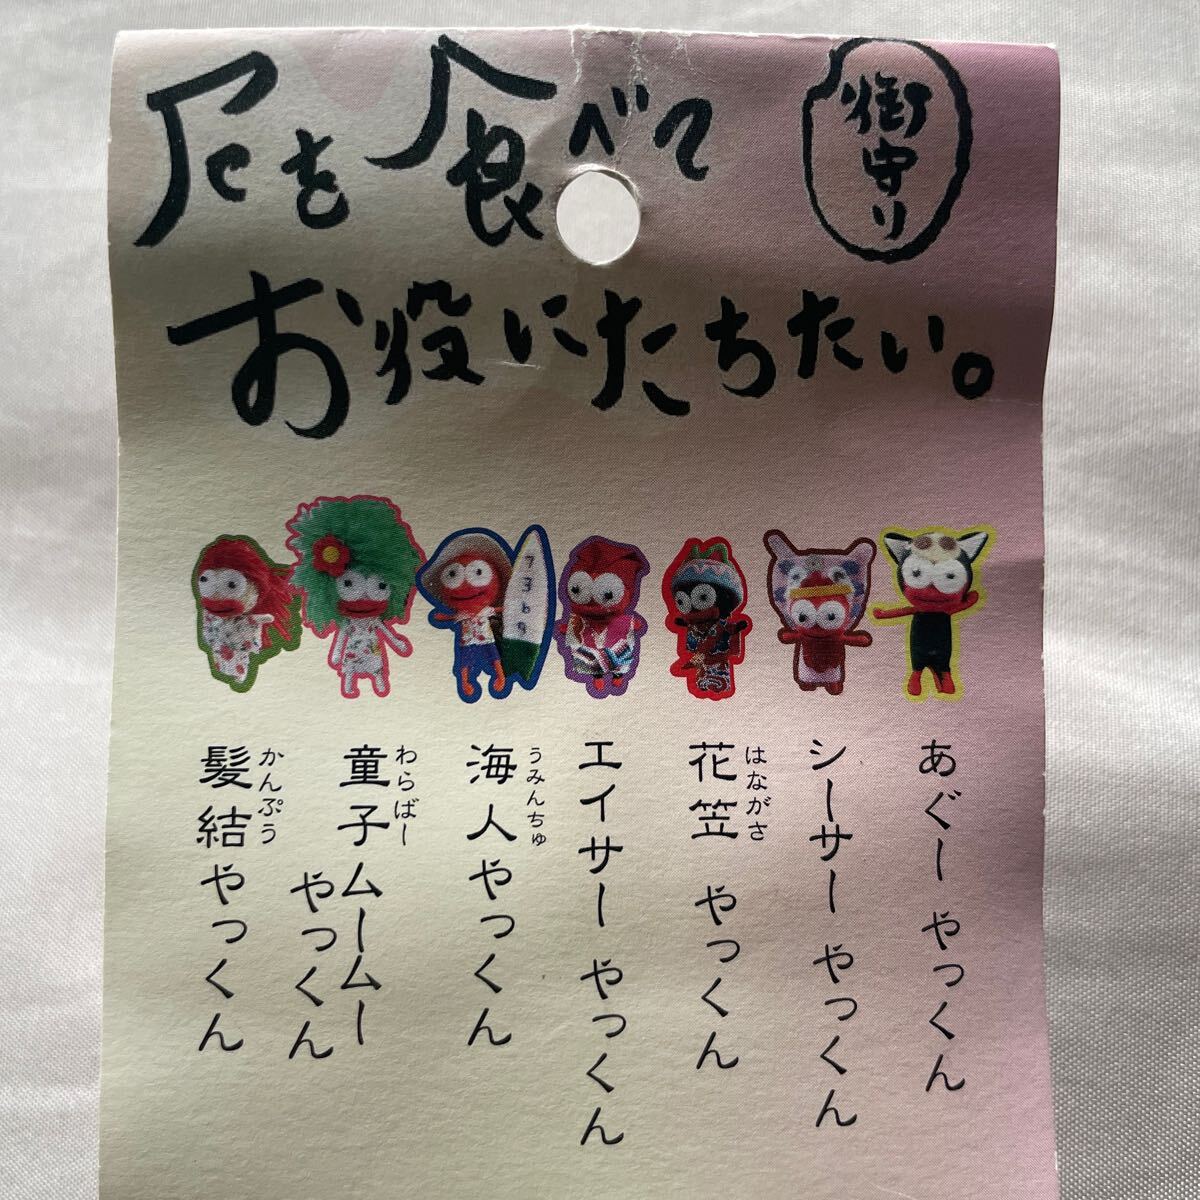 厄を食べて
御守り
お役にたちたい。
7369
あぐー やっくん
シーサー やっくん
はながさ
花笠 やっくん
エイサー やっくん
うみんちゅ
海人やっくん
わらばー
童子ムームー
やっくん
かんぷう
髪結やっくん